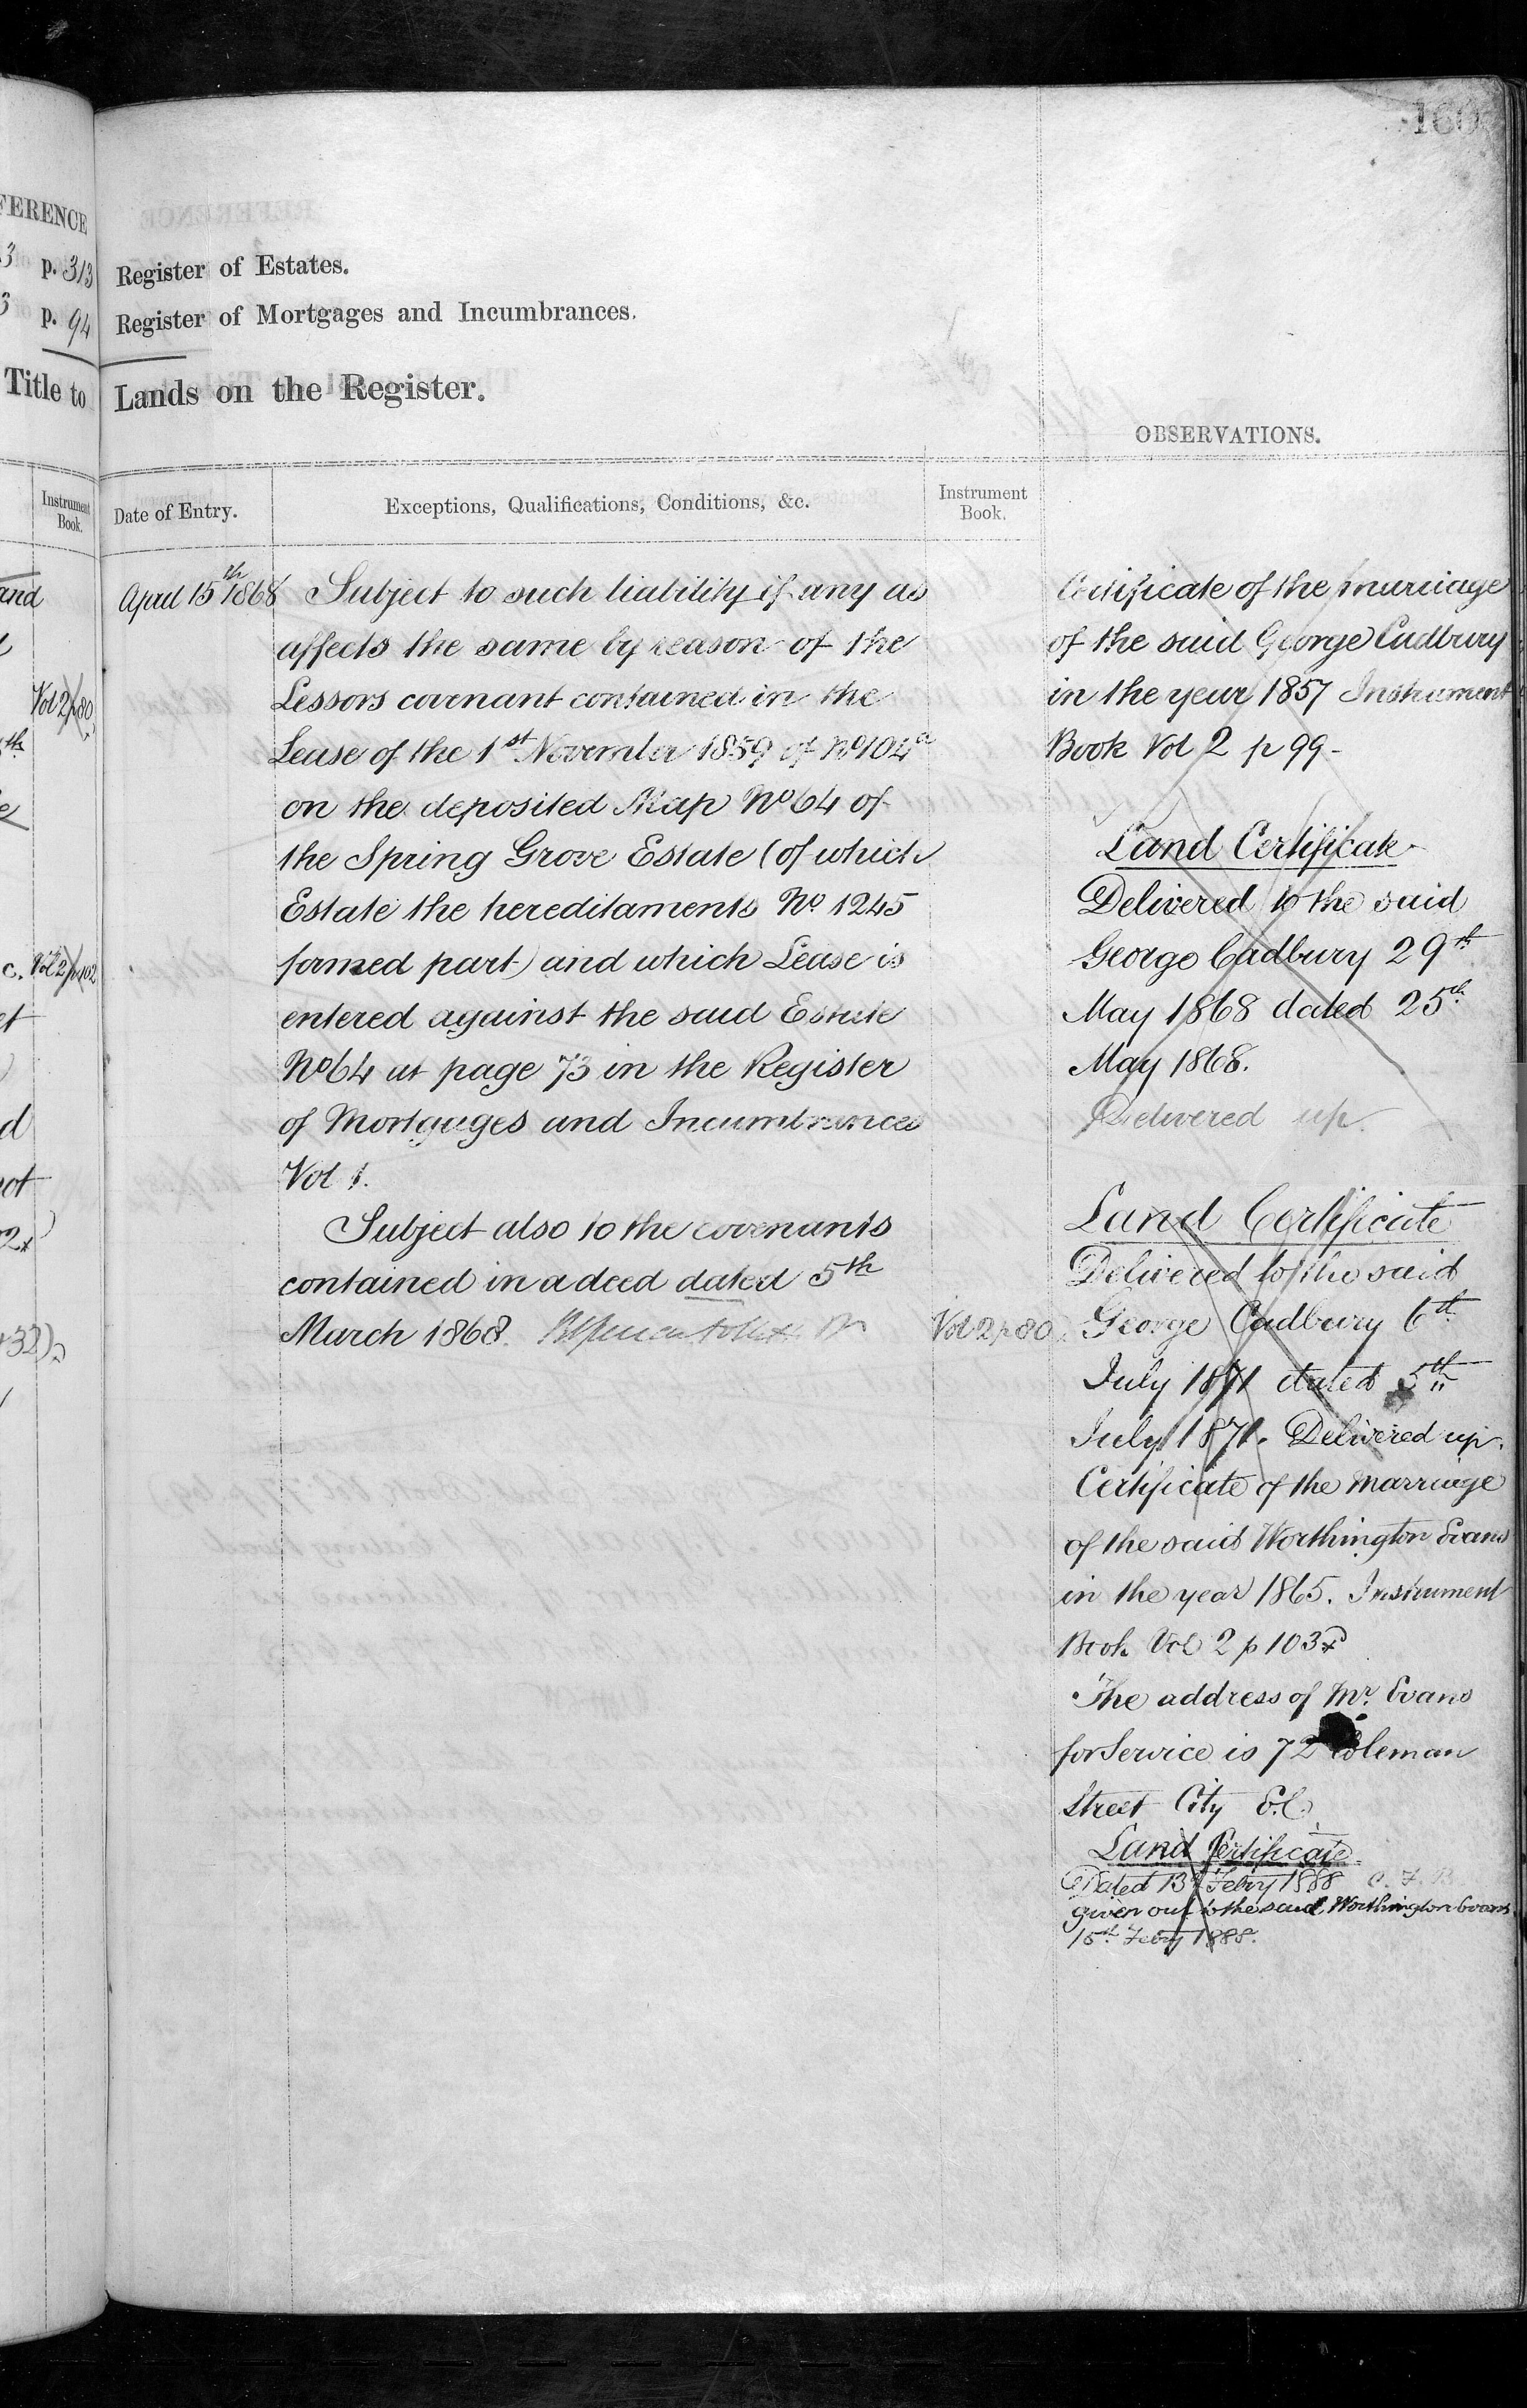 160
FERENCE
p. 313
p. 94
Title to
Instrument
Book.
and
Vol 2 p 80
Vol 2 p 102
Register of Estates.
Register of Mortgages and Incumbrances.
Lands on the Register.
OBSERVATIONS.
Date of Entry.
Exceptions, Qualifications, Conditions, &c.
Instrument
Book.
April 15th 1868
Subject to such liability if any as
affects the same by reason of the
Lessors covenant contained in the
Lease of the 1st November 1859 of No 104a
on the deposited Map No 64 of
the Spring Grove Estate (of which
Estate the hereditaments No 1245
formed part) and which Lease is
entered against the said Estate
No 64 at page 73 in the Register
of Mortgages and Incumbrances
Vol 1.
Subject also to the covenants
contained in a deed dated 5th
March 1868.
Vol 2 p 80
Certificate of the marriage
of the said George Cadbury
in the year 1857 Instrument
Book Vol 2 p 99 -
Land Certificate
Delivered to the said
George Cadbury 29th
May 1868 dated 25th
May 1868.
Delivered up.
Land Certificate
Delivered to the said
George Cadbury 6th
July 1871 dated 5th
July 1871. Delivered up.
Certificate of the Marriage
of the said Worthington Evans
in the year 1865. Instrument
Book Vol 2 p 103
The address of Mr. Evans
for Service is 72 Coleman
Street City E.C.
Land Certificate
Dated 13th Febry 1888
given out to the said Worthington Evans
15th Febry 1888.